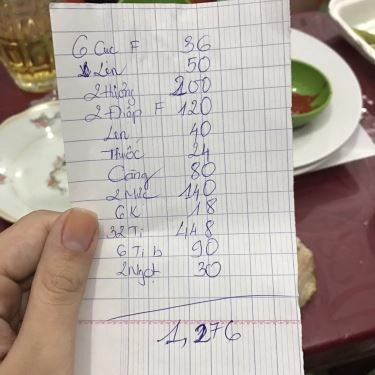 6 Cuc F 36
Lên 50
2 Hường 200
2 Điệp F 120
Len 40
Thuốc 24
Càng 80
2 Mực 140
6 K 18
32 Ti 448
6 Ti b 90
2 Ngọt 30
1,276